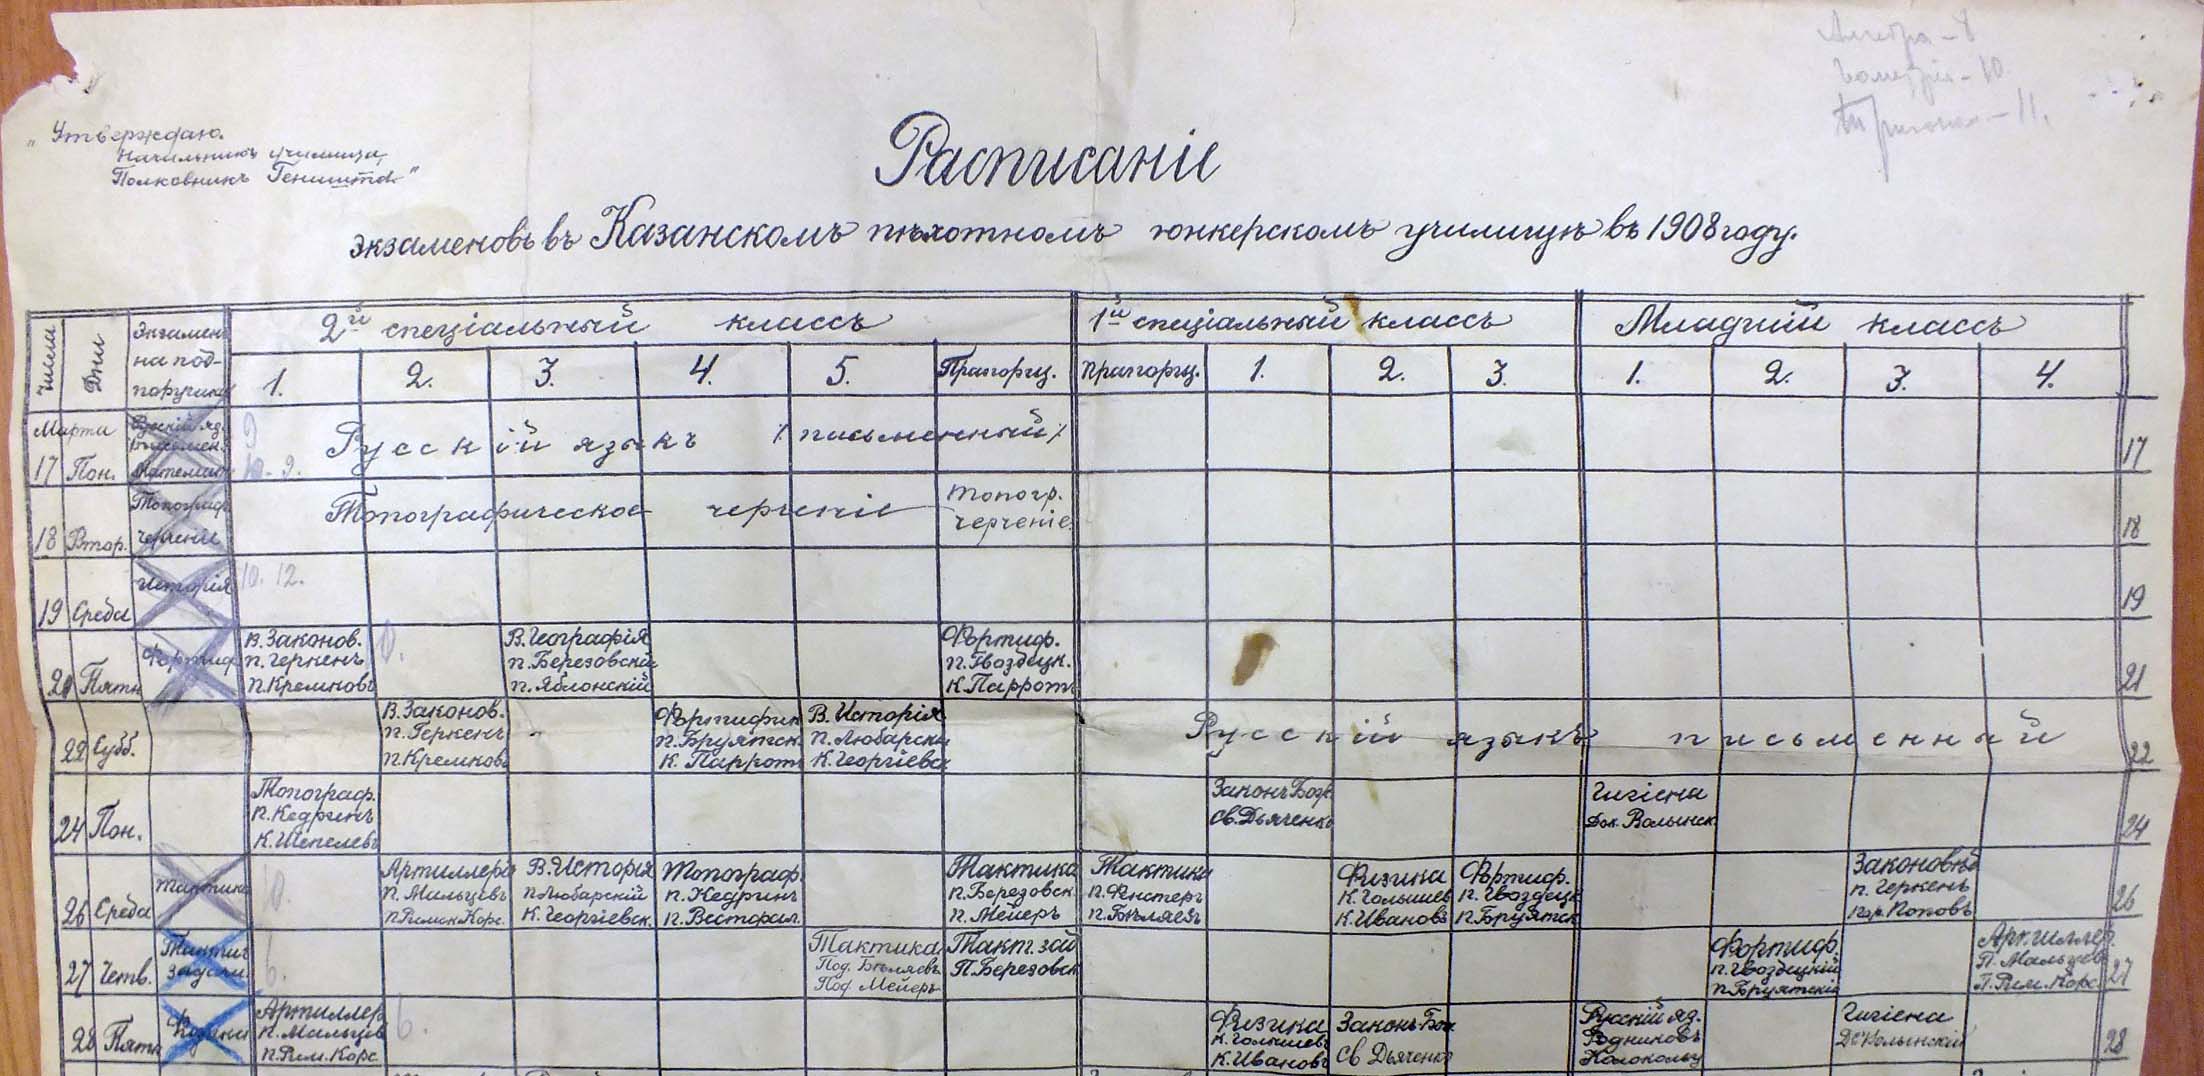 Алгебра – 8
Геометрія – 10
Тригоном – 11.
„Утверждаю.
Начальникъ училища,
Полковникъ Геништа"
Расписаніе
экзаменовъ въ Казанскомъ пѣхотномъ юнкерскомъ училищѣ въ 1908 году.
Числа Дни Экзамен на под-поручика 2й спеціальный классъ 1й спеціальный классъ Младшій классъ
1. 2. 3. 4. 5. Прапорщ. Прапорщ. 1. 2. 3. 1. 2. 3. 4.
Марта Русскій яз. 9
письмен. Русскій языкъ /письменный/
17 Пон. Математ. 10. 9. 17
Топограф. Топографическое черченіе топогр.
18 Втор. черченіе черченіе. 18
Исторія 10. 12.
19 Среда 19
В. Законов. В. Географія Фортиф.
Фортиф. п. Геркенъ п. Березовскій п. Гвоздецк.
21 Пятн п. Кремковъ п. Яблонскій К. Парротъ 21
В. Законов. Фортифик В. Исторія
п. Геркенъ п. Бруятск. п. Любарскі Русскій языкъ письменный
22 Субб. п. Кремковъ К. Парротъ К. Георгіевск 22
Топограф. Законъ Бож. Гигіена
п. Кедринъ Св. Дьяченко Док. Волынск.
24 Пон. К. Шепелевъ 24
Артиллері В. Исторія Топограф. Тактика Тактика Физика Фортиф. Законовѣд
Тактика 10. п. Мальцевъ п. Любарскій п. Кедринъ п. Березовск. п. Фистеръ К. Голышев п. Гвоздецк п. Геркенъ
26 Среда п. Римск. Корс. К. Георгіевск. п. Вестфал. п. Мейеръ п. Бѣляевъ К. Ивановъ п. Бруятск пор. Поповъ 26
Тактич Тактика Такт. зад Фортиф. Артиллер.
задачи 6. Под. Бѣляевъ П. Березовск п. Гвоздецкій П. Мальцев
27 Четв. Под Мейеръ п. Бруятскій П. Рим. Корс. 27
Артиллер. Физика Законъ Бож Русскій яз. Гигіена
п. Мальцев 6. К. Голышевъ Родниковъ Д. Волынскій
28 Пятн п. Рим. Корс К. Ивановъ Св Дьяченко Колокольц 28